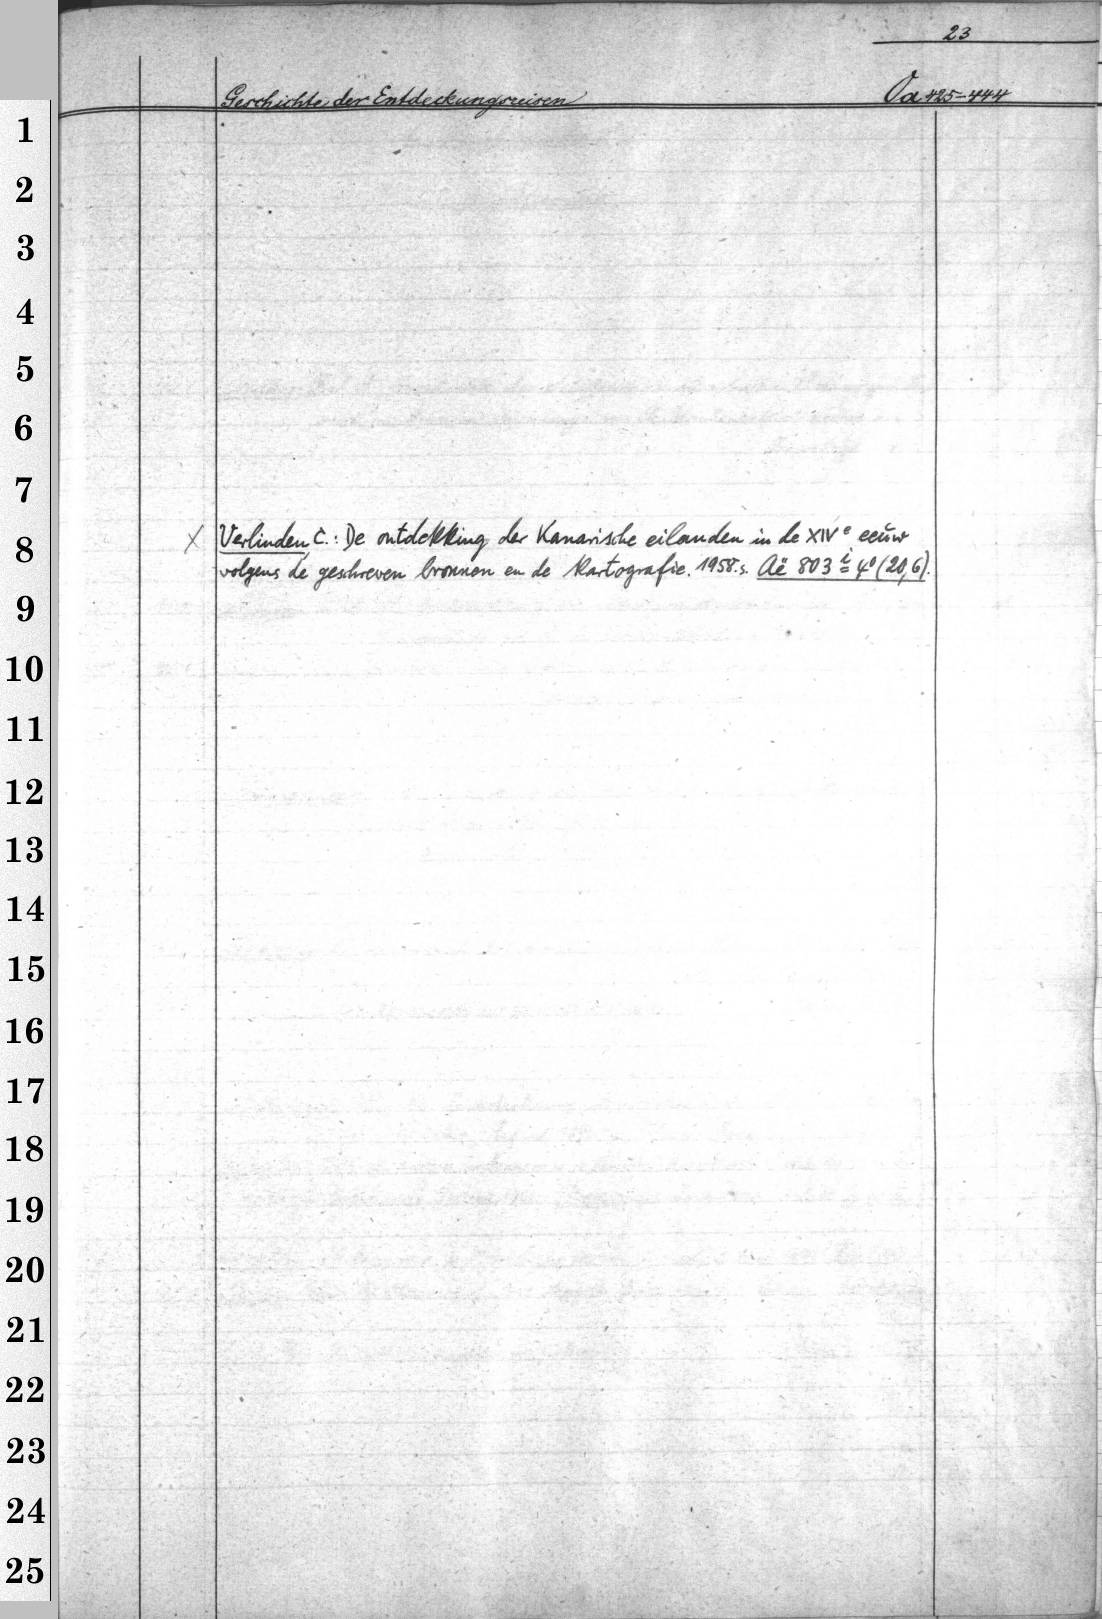 23
Geschichte der Entdeckungsreisen Oa 425-444
1
2
3
4
5
6
7
X Verlinden, C.: De ontdekking der Kanarische eilanden in de XIVe eeuw
8
volgens de geschreven bronnen en de kartografie. 1958. s. Aë 803 i = 4° (20,6).
9
10
11
12
13
14
15
16
17
18
19
20
21
22
23
24
25